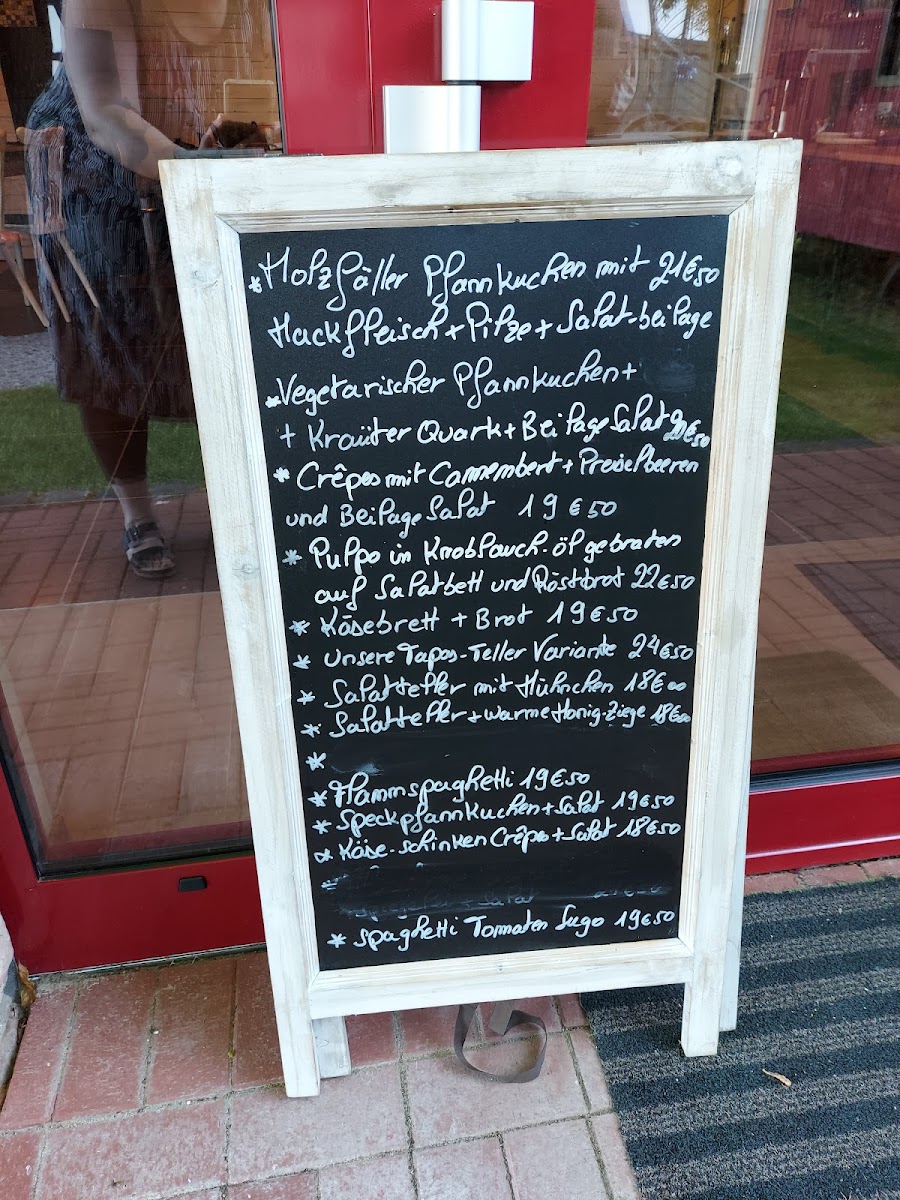 *Holzfäller Pfannkuchen mit 21€50
Hackfleisch + Pilze + Salat-beilage
*Vegetarischer Pfannkuchen +
+ Kraüter Quark + Beilage Salat 20€50
* Crêpes mit Camembert + Preiselbeeren
und Beilage Salat 19€50
* Pulpo in Knoblauch-öl gebraten
auf Salatbett und Röstbrot 22€50
* Käsebrett + Brot 19€50
* Unsere Tapas-Teller Variante 24€50
* Salatteller mit Hühnchen 18€00
* Salatteller + warme Honig-Ziege 18€00
*
* Flammspaghetti 19€50
* Speckpfannkuchen + Salat 19€50
* Käse-Schinken Crêpes + Salat 18€50
* Spaghetti Tomaten Sugo 19€50